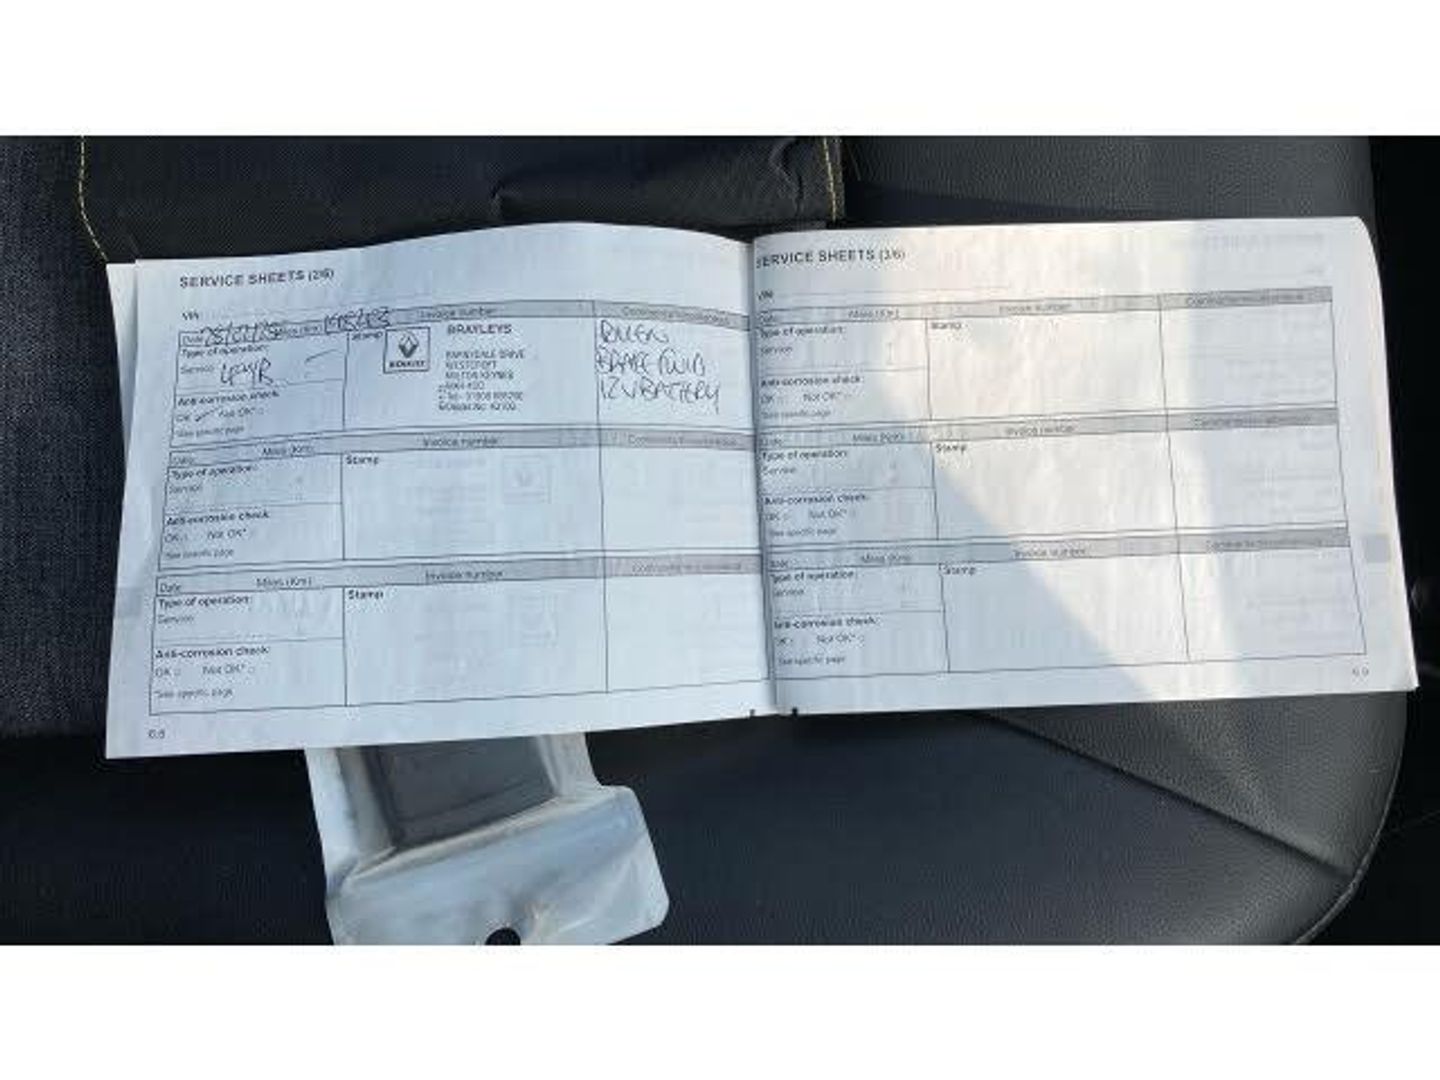 SERVICE SHEETS (2/6)
VIN
Date Miles (Km) Invoice number
Type of operation:
Service 4 YR
Anti-corrosion check:
OK Not OK*
*See specific page
Stamp
RENAULT
BRAYLEYS
WESTCROFT
MILTON KEYNES
POLLEN
BRAKE FLUID
12V BATTERY
Date Miles (Km) Invoice number
Type of operation:
Service
Anti-corrosion check:
OK Not OK*
*See specific page
Stamp
Date Miles (Km) Invoice number
Type of operation:
Service
Anti-corrosion check:
OK Not OK*
*See specific page
Stamp
SERVICE SHEETS (3/6)
VIN
Date Miles (Km) Invoice number
Type of operation:
Service
Anti-corrosion check:
OK Not OK*
*See specific page
Stamp
Date Miles (Km) Invoice number
Type of operation:
Service
Anti-corrosion check:
OK Not OK*
*See specific page
Stamp
Date Miles (Km) Invoice number
Type of operation:
Service
Anti-corrosion check:
OK Not OK*
*See specific page
Stamp
6.9